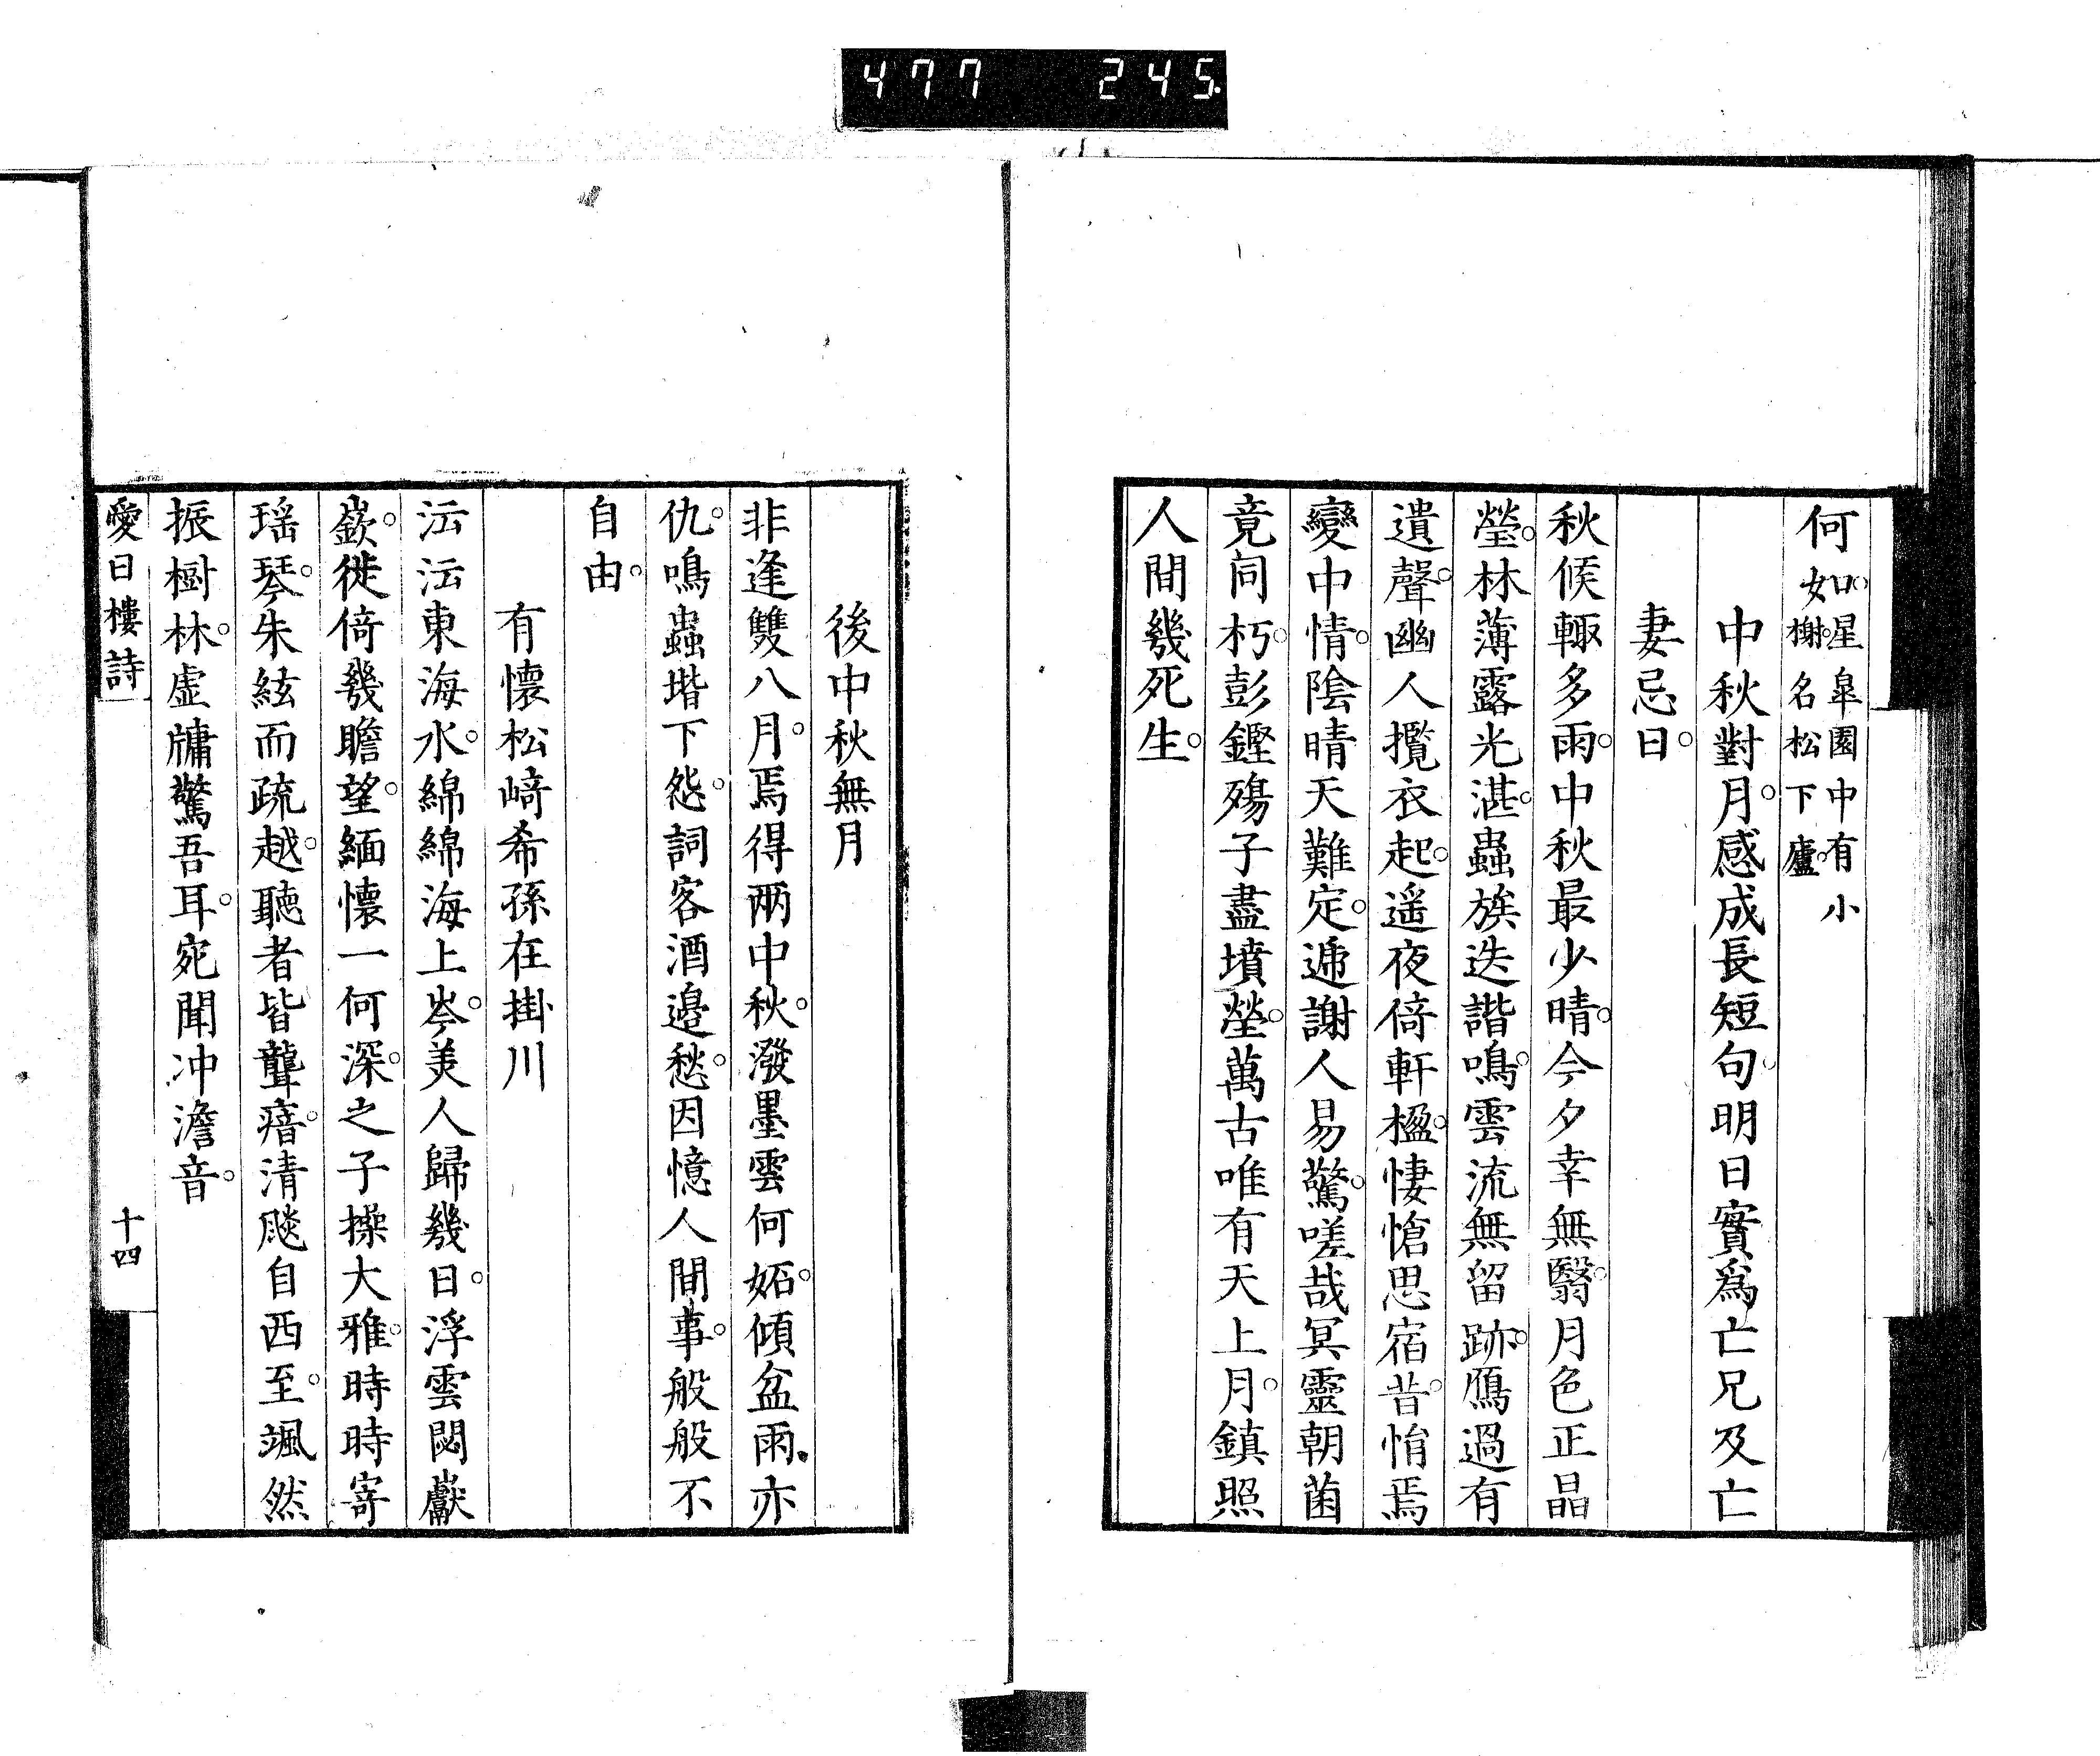 477 245
何如。星皐園中有小
榭。名松下廬。
中秋對月。感成長短句。明日實爲亡兄及亡
妻忌日。
秋候輙多雨。中秋最少晴。今夕幸無翳。月色正晶
瑩。林薄露光湛。蟲族迭諧鳴。雲流無留跡。鴈過有
遺聲。幽人攬衣起。遥夜倚軒楹。悽愴思宿昔。悁焉
變中情。陰晴天難定。遞謝人易驚。嗟哉冥靈朝菌
竟同朽。彭鏗殤子盡墳塋。萬古唯有天上月。鎮照
人間幾死生。
後中秋無月
非逢雙八月。焉得兩中秋。潑墨雲何妬。傾盆雨亦
仇。鳴蟲堦下怨。詞客酒邉愁。因憶人間事。般般不
自由。
有懷松﨑希孫在掛川
沄沄東海水。綿綿海上岑。美人歸幾日。浮雲閟巘
嶔。徙倚幾瞻望。緬懷一何深。之子操大雅。時時寄
瑶琴。朱絃而疏越。聽者皆聾瘖。清颷自西至。颯然
振樹林。虚牖驚吾耳。宛聞冲澹音。
愛日樓詩
十四